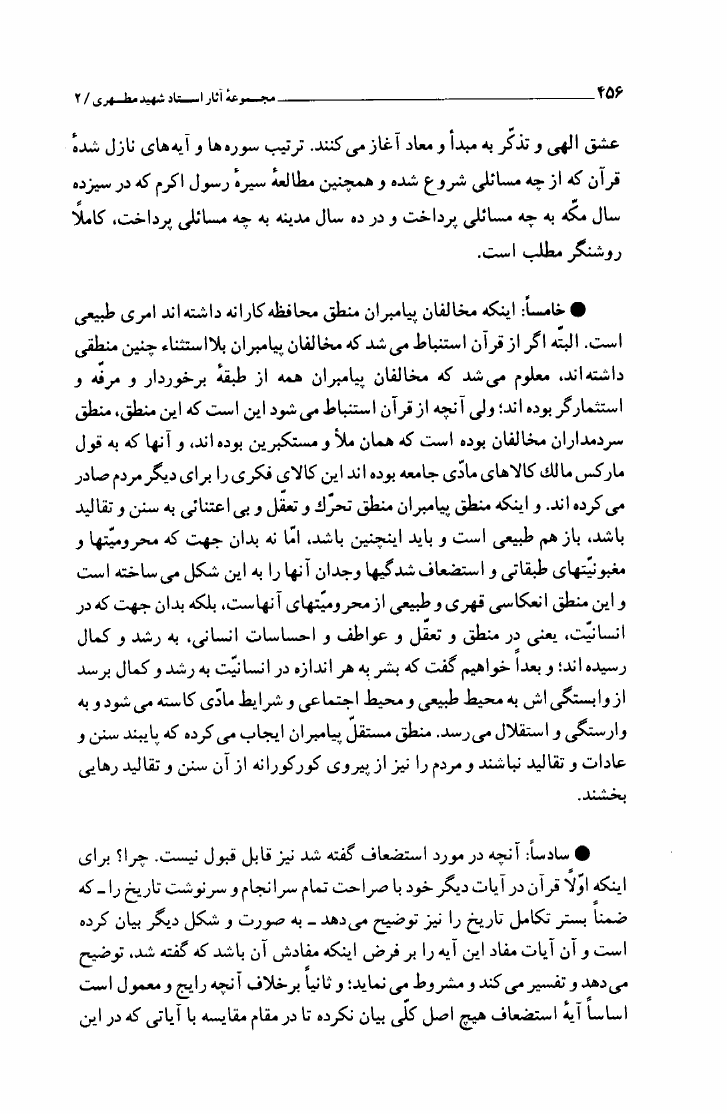 ۴۵۶ مجموعهٔ آثار استاد شهید مطهری / ۲
عشق الهی و تذکّر به مبدأ و معاد آغاز می‌کنند. ترتیب سوره‌ها و آیه‌های نازل شدهٔ
قرآن که از چه مسائلی شروع شده و همچنین مطالعهٔ سیرهٔ رسول اکرم که در سیزده
سال مکّه به چه مسائلی پرداخت و در ده سال مدینه به چه مسائلی پرداخت، کاملاً
روشنگر مطلب است.
● خامساً: اینکه مخالفان پیامبران منطق محافظه‌کارانه داشته‌اند امری طبیعی
است. البتّه اگر از قرآن استنباط می‌شد که مخالفان پیامبران بلااستثناء چنین منطقی
داشته‌اند، معلوم می‌شد که مخالفان پیامبران همه از طبقهٔ برخوردار و مرفّه و
استثمارگر بوده‌اند؛ ولی آنچه از قرآن استنباط می‌شود این است که این منطق، منطق
سردمداران مخالفان بوده است که همان ملأ و مستکبرین بوده‌اند، و آنها که به قول
مارکس مالك کالاهای مادّی جامعه بوده‌اند این کالای فکری را برای دیگر مردم صادر
می‌کرده‌اند. و اینکه منطق پیامبران منطق تحرّك و تعقّل و بی‌اعتنائی به سنن و تقالید
باشد، باز هم طبیعی است و باید اینچنین باشد، امّا نه بدان جهت که محرومیّتها و
مغبونیّتهای طبقاتی و استضعاف‌شدگیها وجدان آنها را به این شکل می‌ساخته است
و این منطق انعکاسی قهری و طبیعی از محرومیّتهای آنهاست، بلکه بدان جهت که در
انسانیّت، یعنی در منطق و تعقّل و عواطف و احساسات انسانی، به رشد و کمال
رسیده‌اند؛ و بعداً خواهیم گفت که بشر به هر اندازه در انسانیّت به رشد و کمال برسد
از وابستگی‌اش به محیط طبیعی و محیط اجتماعی و شرایط مادّی کاسته می‌شود و به
وارستگی و استقلال می‌رسد. منطق مستقلّ پیامبران ایجاب می‌کرده که پایبند سنن و
عادات و تقالید نباشند و مردم را نیز از پیروی کورکورانه از آن سنن و تقالید رهایی
بخشند.
● سادساً: آنچه در مورد استضعاف گفته شد نیز قابل قبول نیست. چرا؟ برای
اینکه اوّلاً قرآن در آیات دیگر خود با صراحت تمام سرانجام و سرنوشت تاریخ را ـ که
ضمناً بستر تکامل تاریخ را نیز توضیح می‌دهد ـ به صورت و شکل دیگر بیان کرده
است و آن آیات مفاد این آیه را بر فرض اینکه مفادش آن باشد که گفته شد، توضیح
می‌دهد و تفسیر می‌کند و مشروط می‌نماید؛ و ثانیاً برخلاف آنچه رایج و معمول است
اساساً آیهٔ استضعاف هیچ اصل کلّی بیان نکرده تا در مقام مقایسه با آیاتی که در این